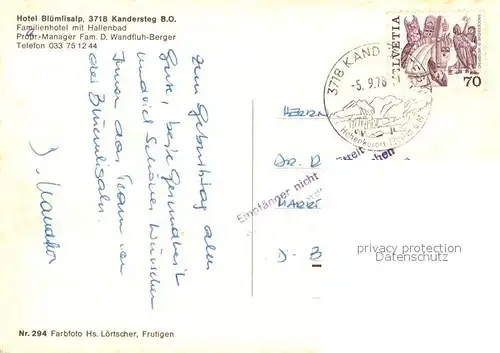 Hotel Blümlisalp, 3718 Kandersteg B.O.
Familienhotel mit Hallenbad
Propr.-Manager Fam. D. Wandfluh-Berger
Telefon 033 75 12 44
HELVETIA
70
3718 KAND
-5.9.78
Zum Geburtstag alles
Gute, beste Gesundheit
und viel Schönes wünschen
Ihnen das Team von
der Blümlisalp.
HERRN
DR. D
MARKT
D-
Empfänger nicht
privacy protection
Datenschutz
Nr. 294 Farbfoto Hs. Lörtscher, Frutigen